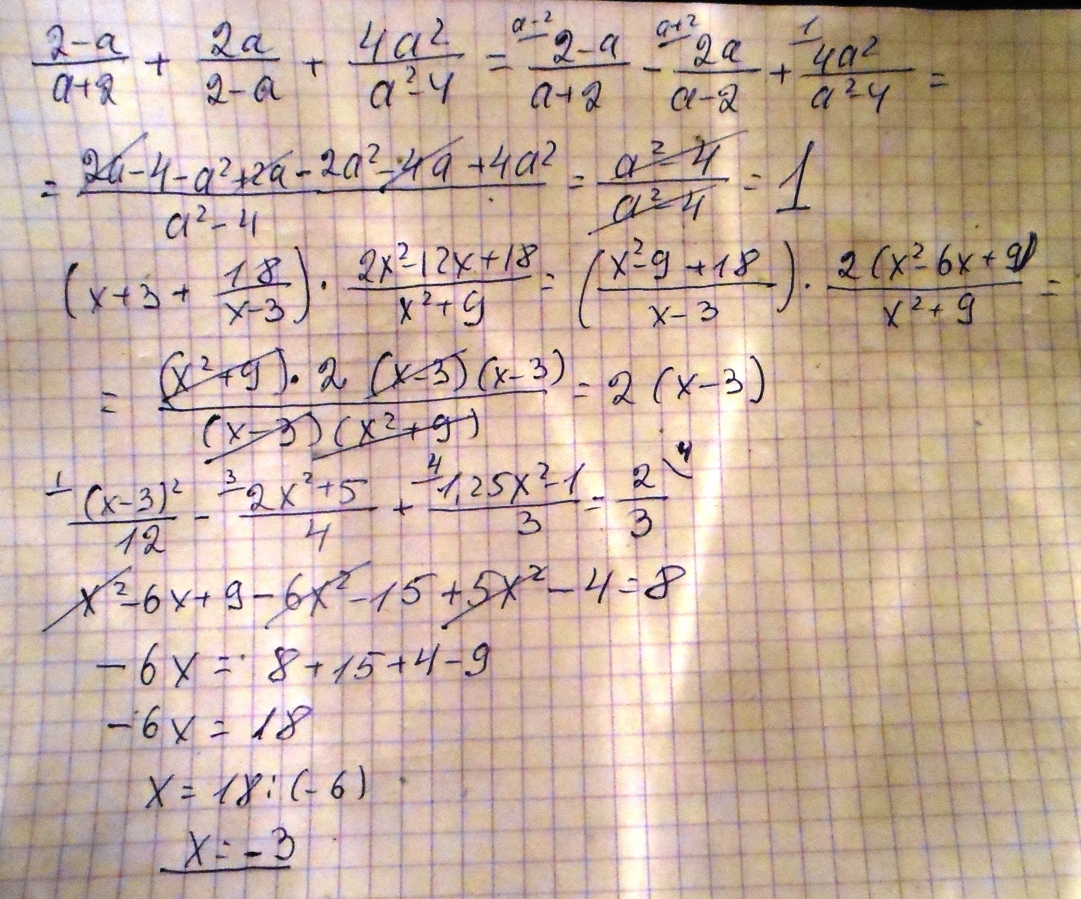 (2-a)/(a+2) + 2a/(2-a) + 4a²/(a²-4) = a-2 (2-a)/(a+2) - a+2 2a/(a-2) + 1 4a²/(a²-4) =
= (2a-4-a²+2a-2a²-4a+4a²)/(a²-4) = (a²-4)/(a²-4) = 1
(x+3+18/(x-3)) · (2x²-12x+18)/(x²+9) = ((x²-9+18)/(x-3)) · 2(x²-6x+9)/(x²+9) =
= ((x²+9)·2(x-3)(x-3))/((x-3)(x²+9)) = 2(x-3)
1 (x-3)²/12 - 3 (2x²+5)/4 + 4 (1,25x²-1)/3 = 2/3 4
x²-6x+9-6x²-15+5x²-4=8
-6x = 8+15+4-9
-6x = 18
x = 18:(-6)
x = -3